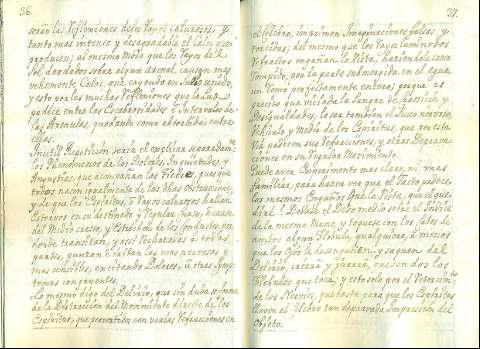 36.
serán las Reflexiones de los Rayos calurosos, y
tanto mas intenso y desagradable el Calor que
producen; al mismo modo que los Rayos del
Sol, dardados sobre algun Arenal, causan mas
vehemente Calor, que cayendo en Suelo unido,
y esto por las muchas Reflexiones que la Luz
padece entre las Escabrosidades è Intervalos de
las Arenulas, quedando como absorbida entre
ellas.
Inutil Repeticion seria el explicar separadam.te
los Phenomenos de los Dolores, Inquietudes, y
Angustias, que acompañan las Fiebres, pues que
todos nacen igualmente de las dhas Obstrucciones,
y de que los Espiritus, ò Rayos calurosos hallan
Estorvos en su destinado y Regular passo, à causa
del Medio crasso, y Estrechez de los Conductos, por
donde transitan, y assi Resbalados à todas
partes, punzan è irritan las mas nerviosas y
mas sensibles, excitando Dolores, ù otros Symp-
tomas congruentes.
Lo mismo digo del Delirio, que sin duda se forma
de la Distraccion del Movimiento directo de los
Espiritus, que pervertidos con varias Refracciones en
37.
el Celebro, imprimen Imaginaciones falsas y
torcidas; del mesmo que los Rayos luminosos
Refractos engañan la Vista, haziendola creer
rompido, por la parte submergida en el agua
un Remo perfectamente entero; porque es
preciso que viciada la Sangre de crassicie y
Desigualdades, lo sea tambien el Succo nervoso,
Vehiculo y Medio de los Espiritus, que por esta
Via padecen sus Refracciones, y otras Depravaciones
en su regular Movimiento.
Puede aver Experimento mas claro, ni mas
familiar, para hazer ver que el Tacto padece
los mesmos Engaños que la Vista, que el que
diré? Doblese el Dedo medio sobre el Indice
de la mesma Mano, y toquese con las Yemas de
ambos algun Globulo, qualquiera, à menos
que los Ojos le desengañen, y saquen del
Delirio, creerá y jurará, que son dos los
Globulos que toca, y esto solo por el Retorcim.to
de los Nervios, que basta para que los Espiritus
lleven al Celebro tan depravada Impression del
Objeto.